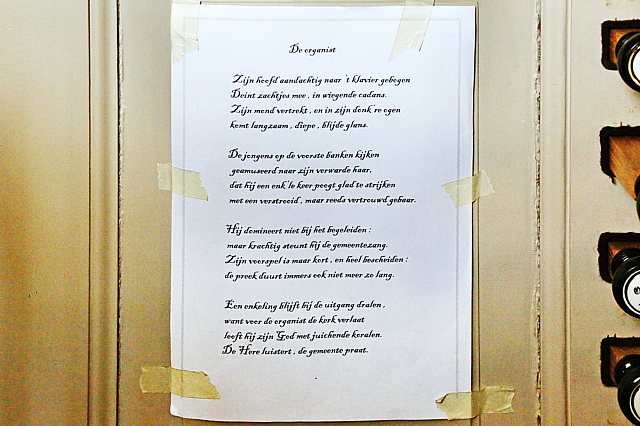 De organist
Zijn hoofd aandachtig naar 't klavier gebogen
Deint zachtjes mee, in wiegende cadans.
Zijn mond vertrekt, en in zijn donk're ogen
komt langzaam, diepe, blijde glans.
De jongens op de voorste banken kijken
geamuseerd naar zijn verwarde haar,
dat hij een enk'le keer poogt glad te strijken
met een verstrooid', maar reeds vertrouwd gebaar.
Hij domineert niet bij het begeleiden:
maar krachtig steunt hij de gemeentezang.
Zijn voorspel is maar kort, en heel bescheiden:
de preek duurt immers ook niet meer zo lang.
Een enkeling blijft bij de uitgang dralen,
want voor de organist de kerk verlaat
looft hij zijn God met juichende koralen.
De Here luistert, de gemeente praat.